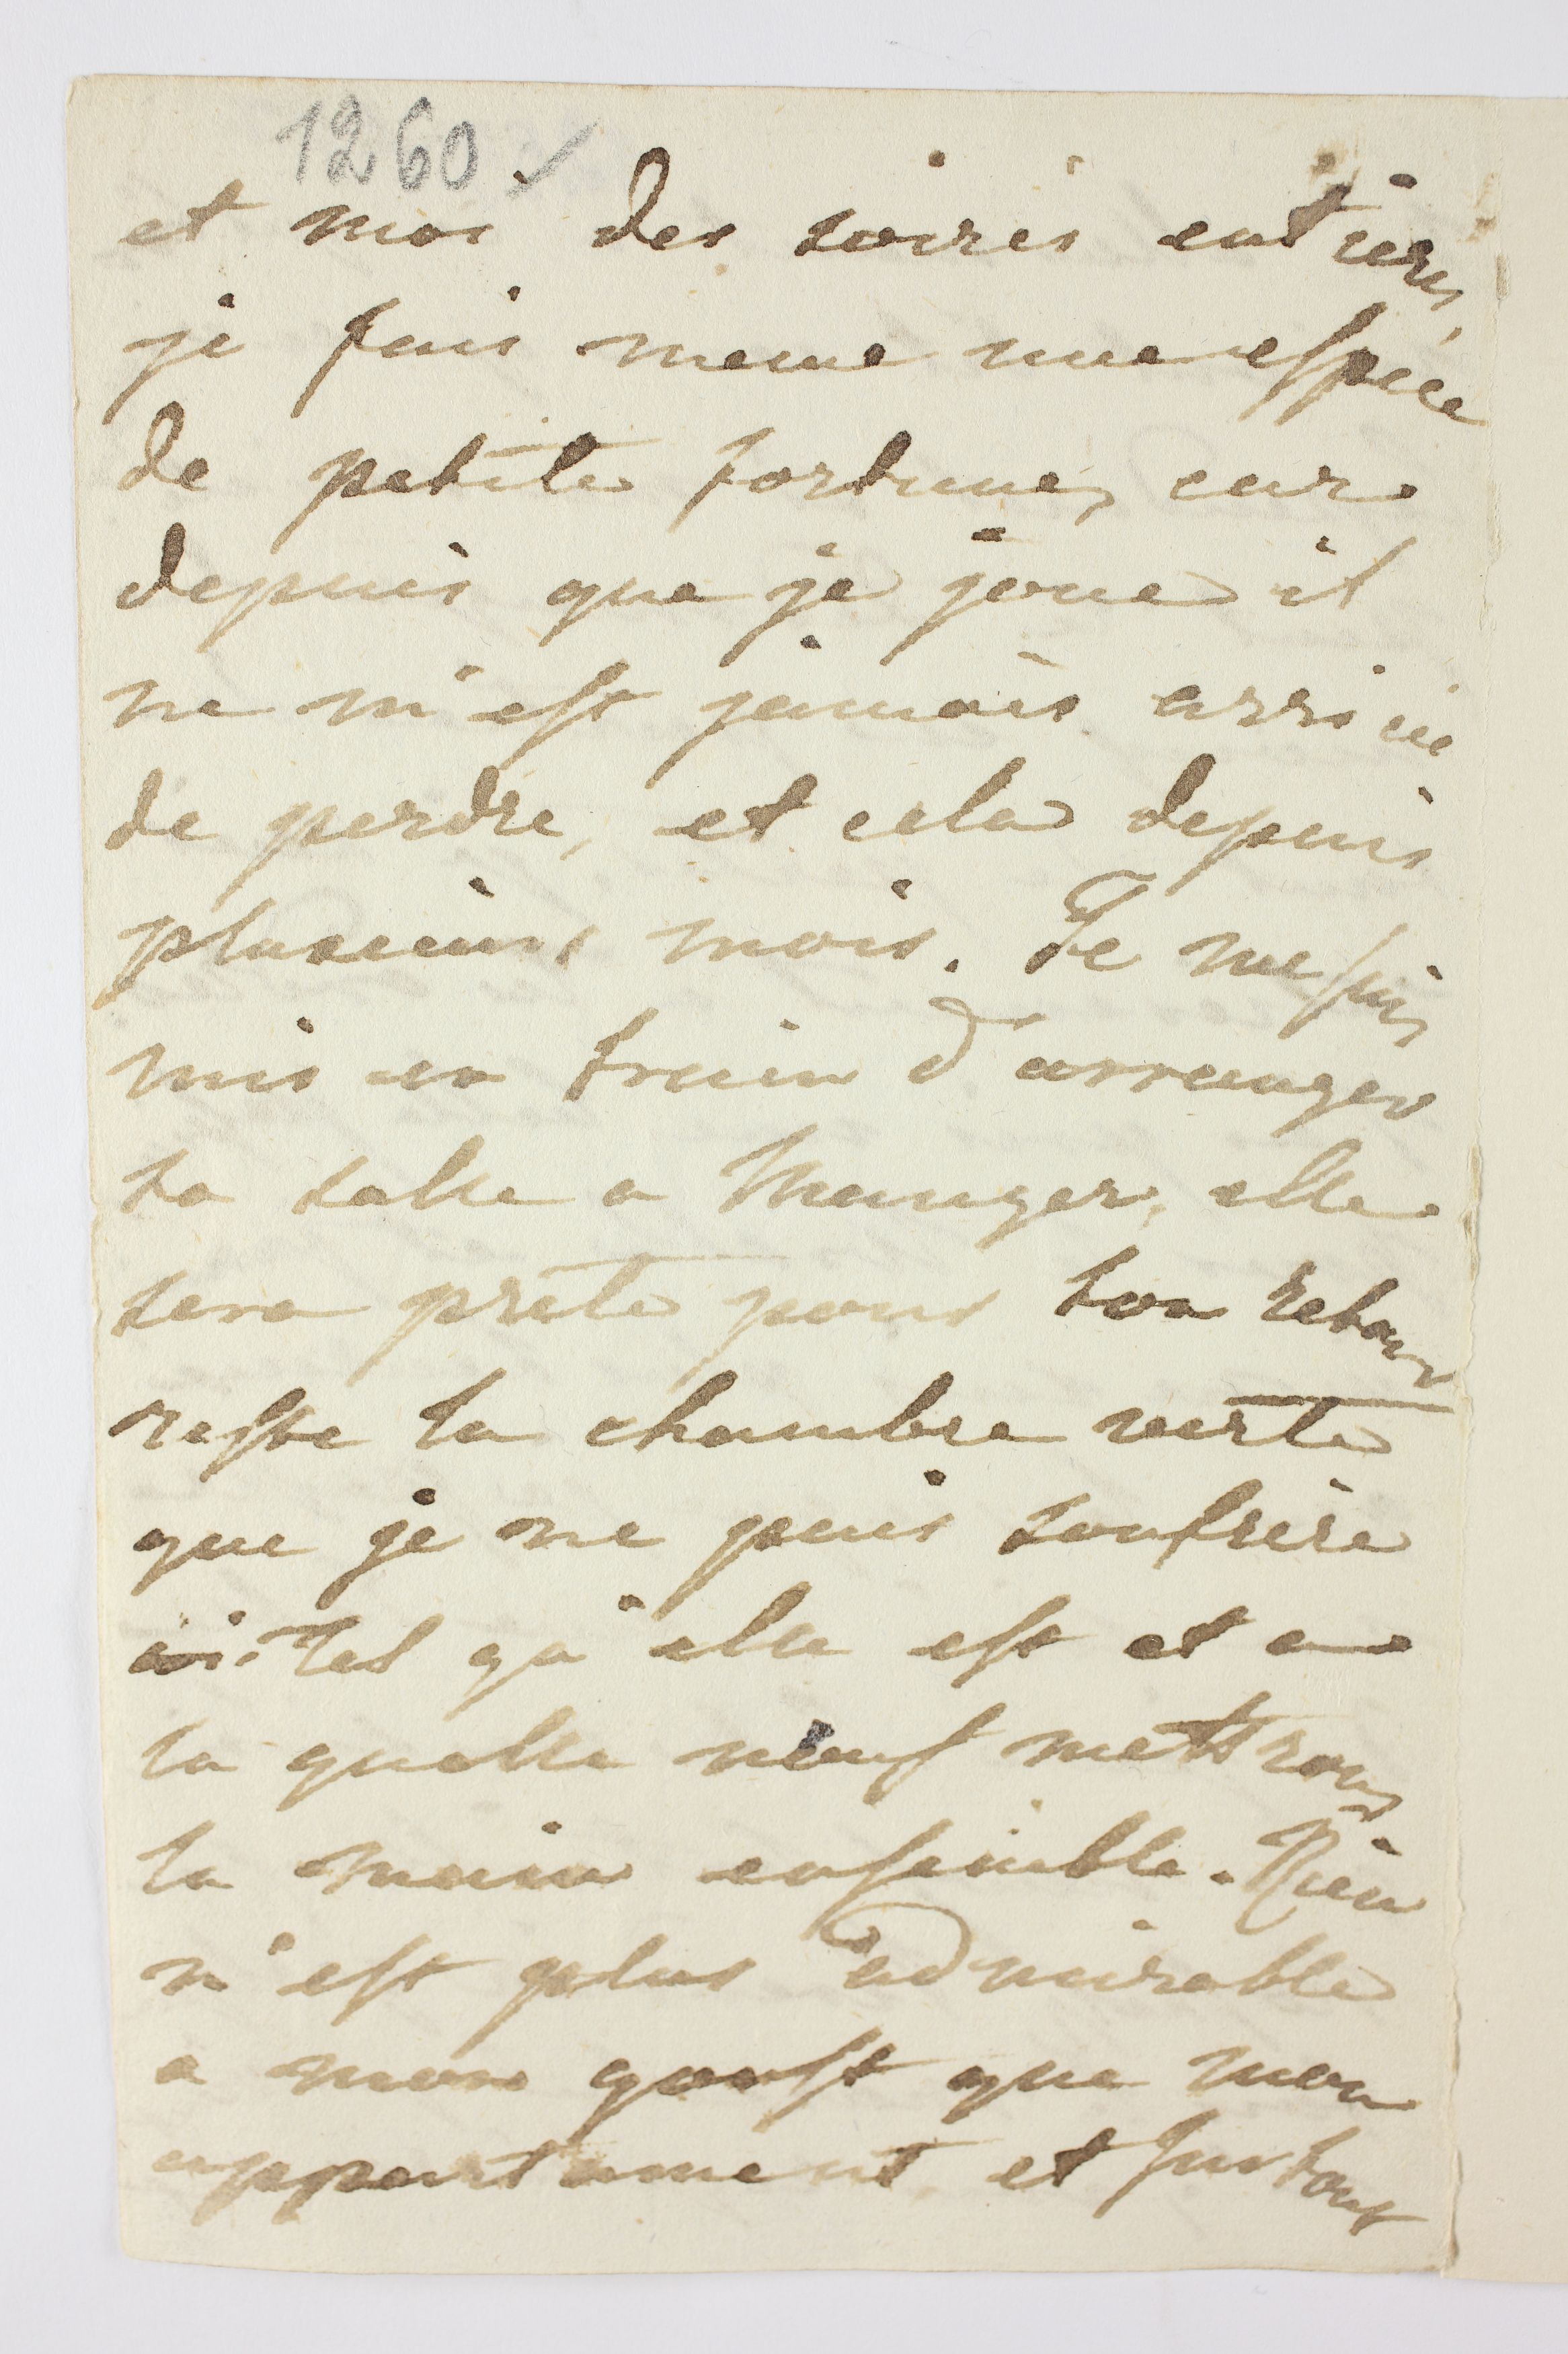 1260 ✓
et moi des soires entieres,
je fais meme une espéce
de petite fortune, car
depuis que je joue il
ne m'est jamais arrivé
de perdre, et cela depuis
plusieurs mois. Je me suis
mis en train d'arranger
ta salle a Manger, elle
sera prete pour ton retour
reste ta chambre verte
que je ne puis soufrire
tel qu'elle est et a
la quelle nous mettrons
la main ensemble. Rien
n'est plus admirable
a mon goust que mon
appartement et surtout